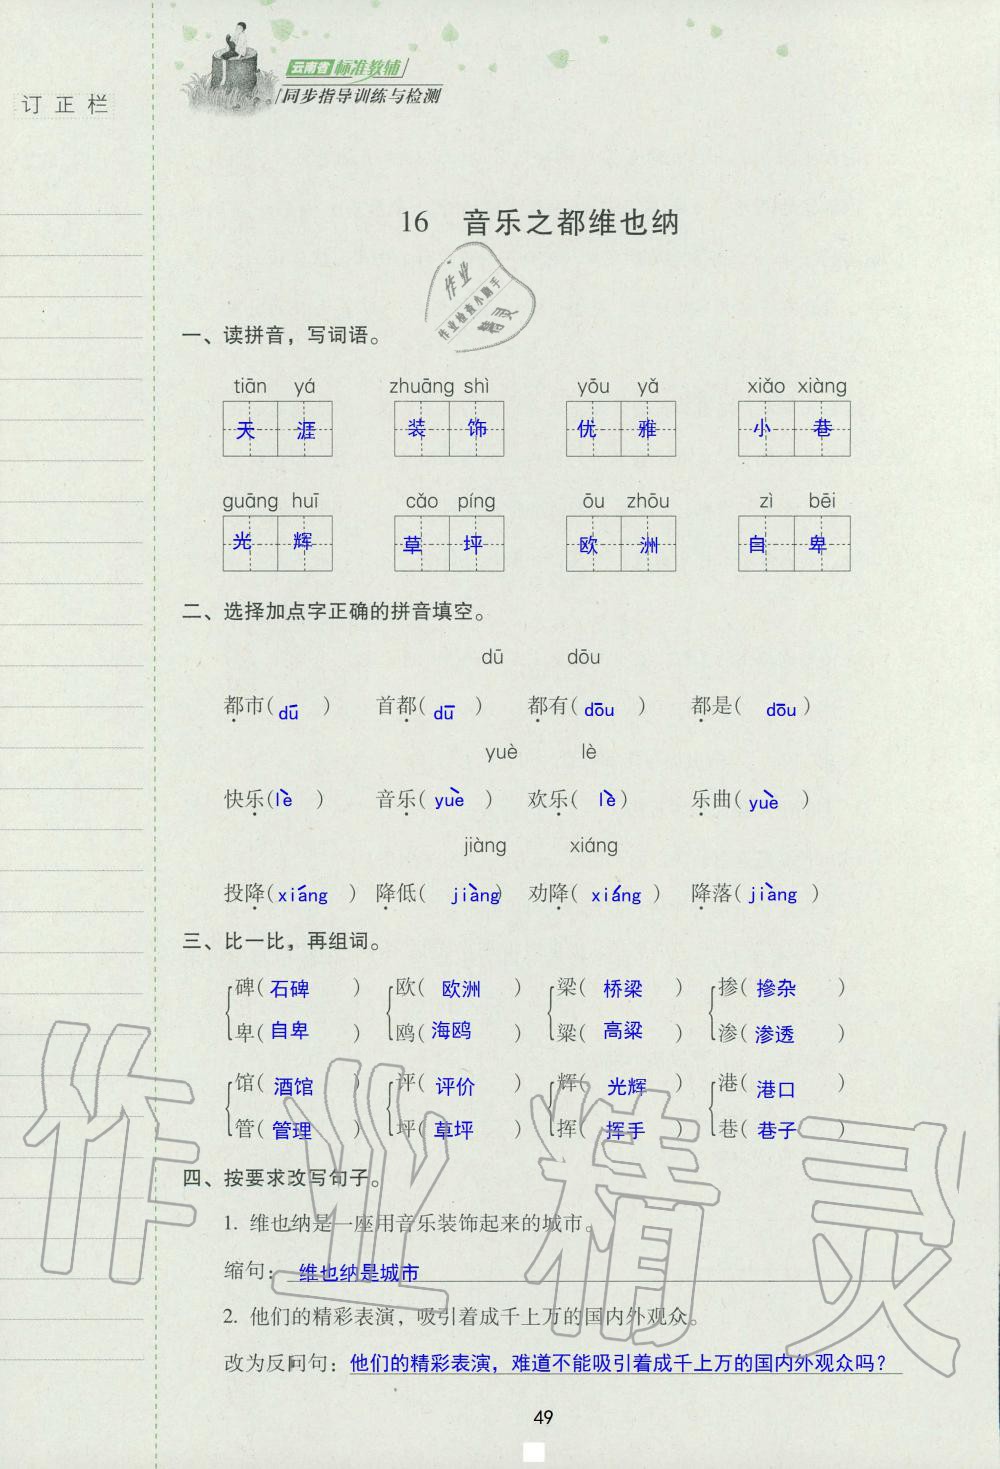 云南省标准教辅
同步指导训练与检测
订正栏
16 音乐之都维也纳
作业
作业检查小助手
精灵
一、读拼音，写词语。
tiān yá zhuāng shì yōu yǎ xiǎo xiàng
天涯 装饰 优雅 小巷
guāng huī cǎo píng ōu zhōu zì bēi
光辉 草坪 欧洲 自卑
二、选择加点字正确的拼音填空。
dū dōu
都市(dū) 首都(dū) 都有(dōu) 都是(dōu)
yuè lè
快乐(lè) 音乐(yuè) 欢乐(lè) 乐曲(yuè)
jiàng xiáng
投降(xiáng) 降低(jiàng) 劝降(xiáng) 降落(jiàng)
三、比一比，再组词。
碑(石碑) 欧(欧洲) 梁(桥梁) 掺(掺杂)
卑(自卑) 鸥(海鸥) 粱(高粱) 渗(渗透)
馆(酒馆) 评(评价) 辉(光辉) 港(港口)
管(管理) 坪(草坪) 挥(挥手) 巷(巷子)
四、按要求改写句子。
1. 维也纳是一座用音乐装饰起来的城市。
缩句：维也纳是城市
2. 他们的精彩表演，吸引着成千上万的国内外观众。
改为反问句：他们的精彩表演，难道不能吸引着成千上万的国内外观众吗？
作业精灵
49